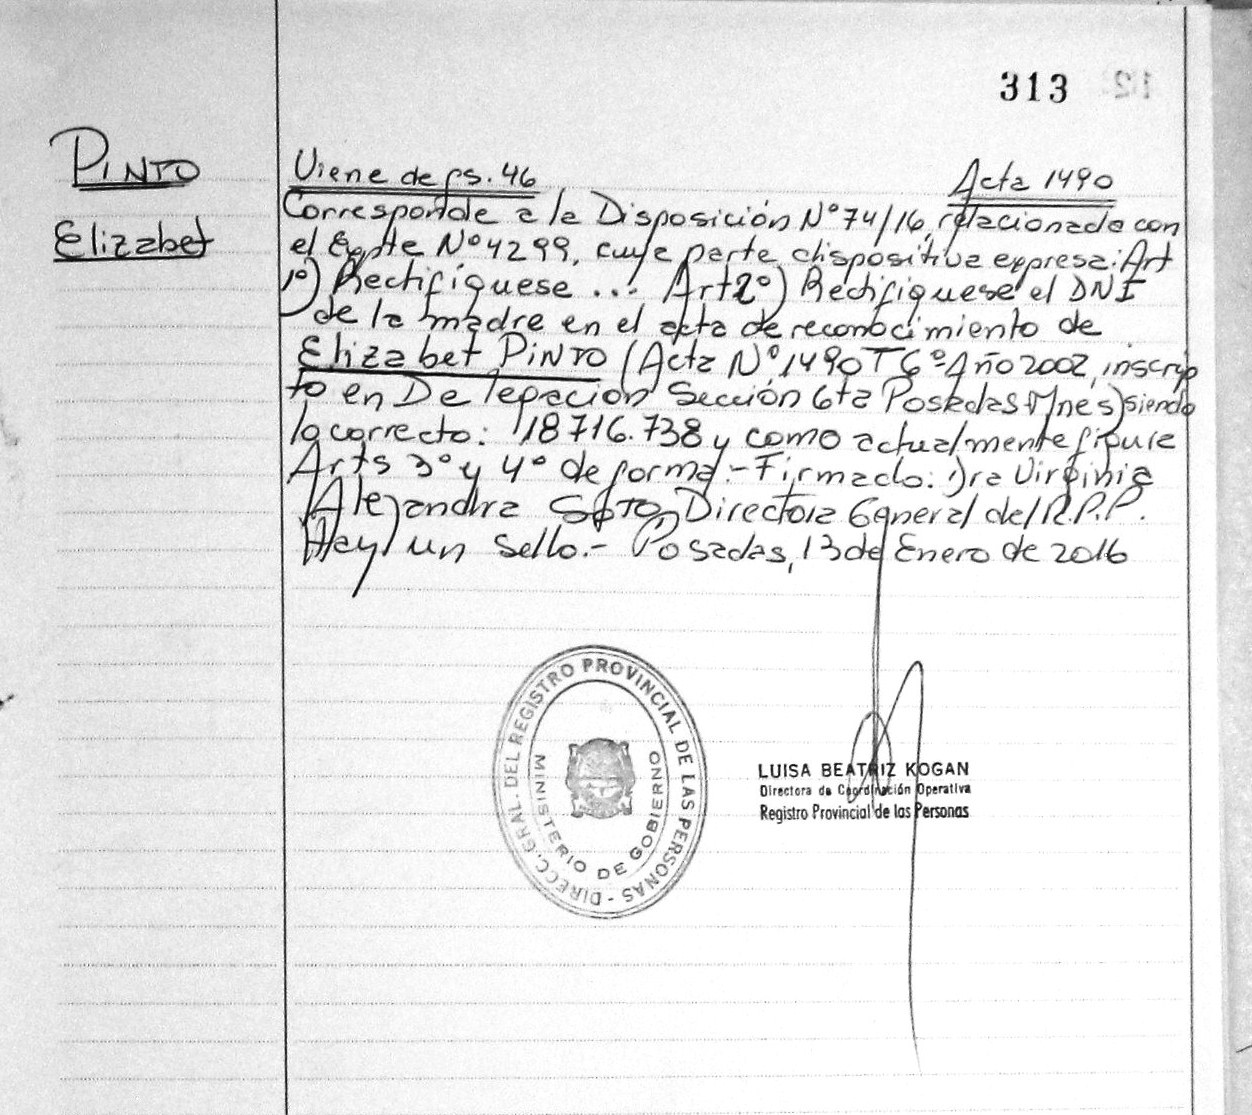 313
PINTO
Elizabet
Viene de fs. 46
Acta 1490
Corresponde a la Disposición N° 74/16, relacionada con
el Expte N° 4299, cuya parte dispositiva expresa: Art
1°) Rectifíquese ... Art 2°) Rectifíquese el DNI
de la madre en el acta de reconocimiento de
Elizabet PINTO (Acta N° 1490 T 6° Año 2002, inscrip
to en Delegación Sección 6ta Posadas Mnes) siendo
lo correcto: 18716.738 y como actualmente figura
Arts 3° y 4° de forma.- Firmado: Dra Virginia
Alejandra SOTO, Directora General del R.P.P.
Hay un sello.- Posadas, 13 de Enero de 2016
DIRECC. GRAL. DEL REGISTRO PROVINCIAL DE LAS PERSONAS -
MINISTERIO DE GOBIERNO
LUISA BEATRIZ KOGAN
Directora de Coordinación Operativa
Registro Provincial de las Personas